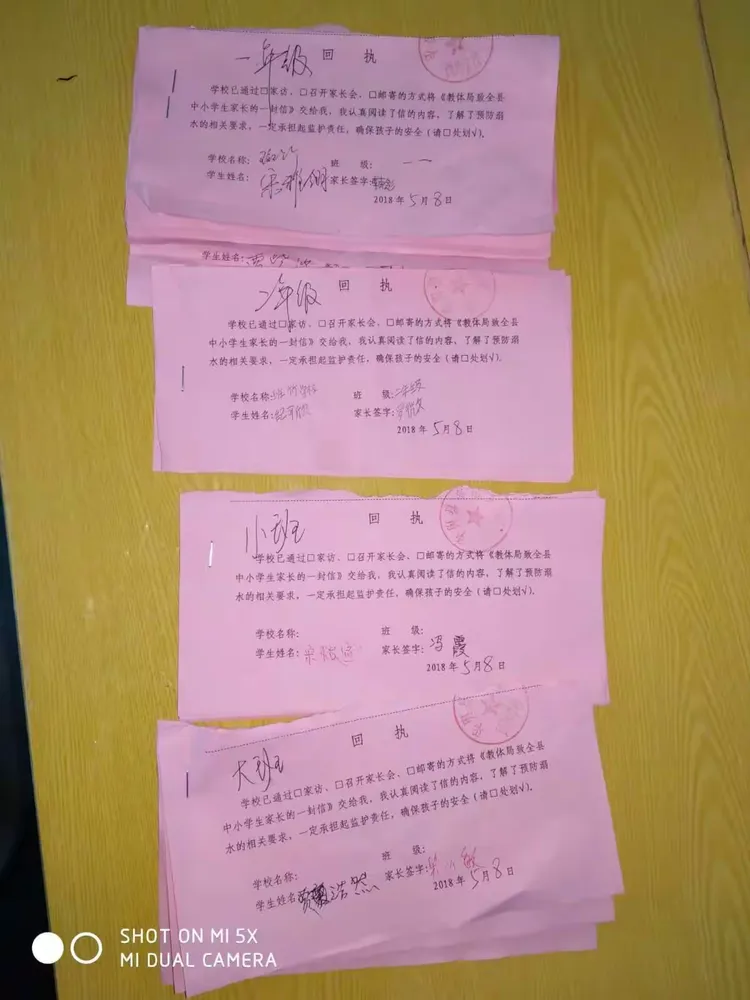 一年级
回 执
学校已通过口家访、口召开家长会、口邮寄的方式将《教体局致全县
中小学生家长的一封信》交给我，我认真阅读了信的内容，了解了预防溺
水的相关要求，一定承担起监护责任，确保孩子的安全（请口处划√）。
学校名称： 班 级：一一
学生姓名： 家长签字：
2018 年 5 月 8 日
学生姓名：
二年级
回 执
学校已通过口家访、口召开家长会、口邮寄的方式将《教体局致全县
中小学生家长的一封信》交给我，我认真阅读了信的内容，了解了预防溺
水的相关要求，一定承担起监护责任，确保孩子的安全（请口处划√）。
学校名称： 班 级：二年级
学生姓名： 家长签字：
2018 年 5 月 8 日
小班
回 执
学校已通过口家访、口召开家长会、口邮寄的方式将《教体局致全县
中小学生家长的一封信》交给我，我认真阅读了信的内容，了解了预防溺
水的相关要求，一定承担起监护责任，确保孩子的安全（请口处划√）。
学校名称： 班 级：
学生姓名： 家长签字：冯霞
2018 年 5 月 8 日
大班
回 执
学校已通过口家访、口召开家长会、口邮寄的方式将《教体局致全县
中小学生家长的一封信》交给我，我认真阅读了信的内容，了解了预防溺
水的相关要求，一定承担起监护责任，确保孩子的安全（请口处划√）。
学校名称： 班 级：
学生姓名 浩然 家长签字：
2018 年 5 月 8 日
SHOT ON MI 5X
MI DUAL CAMERA